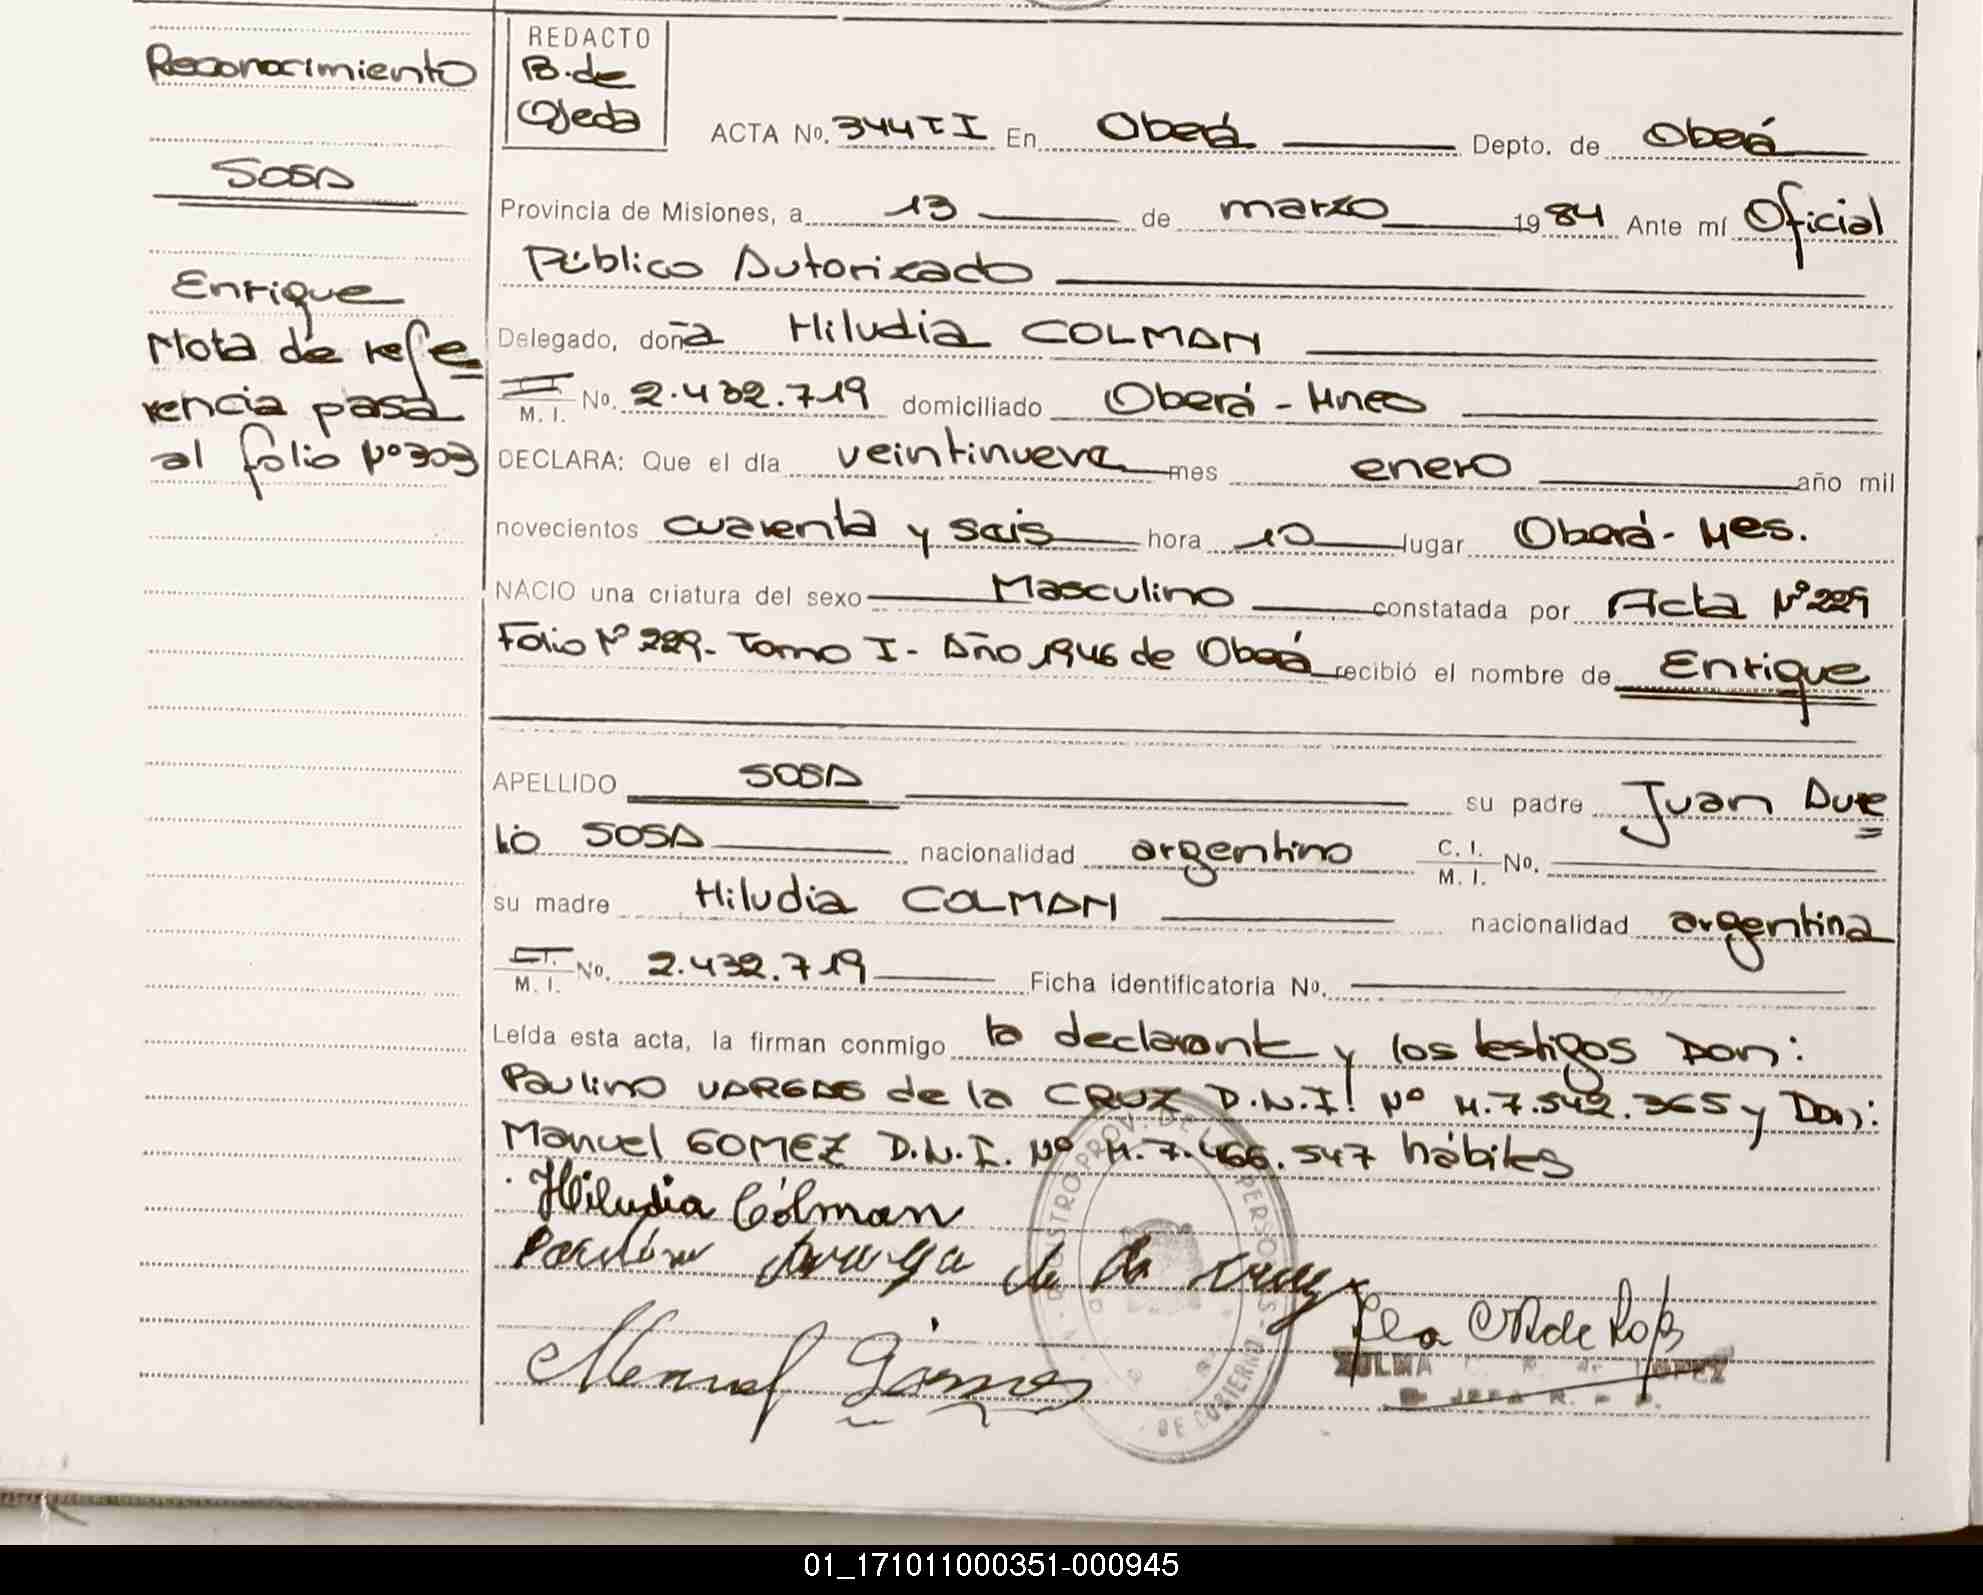 Reconocimiento
SOSA
Enrique
Nota de refe
rencia pasa
al folio Nº 303
REDACTO
B. de
Ojeda
ACTA No. 344 T I En Oberá Depto. de Oberá
Provincia de Misiones, a 13 de marzo 1984 Ante mí Oficial
Público Autorizado
Delegado, doña Hiludia COLMAN
M. I. No. 2.432.719 domiciliado Oberá - Mnes
DECLARA: Que el día veintinueve mes enero año mil
novecientos cuarenta y seis hora 10 lugar Oberá - Mes.
NACIO una criatura del sexo Masculino constatada por Acta Nº 229
Folio Nº 229 - Tomo I - Año 1946 de Oberá recibió el nombre de Enrique
APELLIDO SOSA su padre Juan Aure
lio SOSA nacionalidad argentino C. I. M. I. No.
su madre Hiludia COLMAN nacionalidad argentina
C. I. M. I. No. 2.432.719 Ficha identificatoria No.
Leída esta acta, la firman conmigo la declarante y los testigos Don:
Paulino VARGAS de la CRUZ D.N.I. Nº M.7.542.365 y Don:
Manuel GOMEZ D.N.I. Nº M.7.466.547 hábiles
Hiludia Cólman
de la
Manuel Gómez
ZULMA LOPEZ
JEFA R.
REGISTRO PROV. DE PERSONAS
DE GOBIERNO
01_171011000351-000945